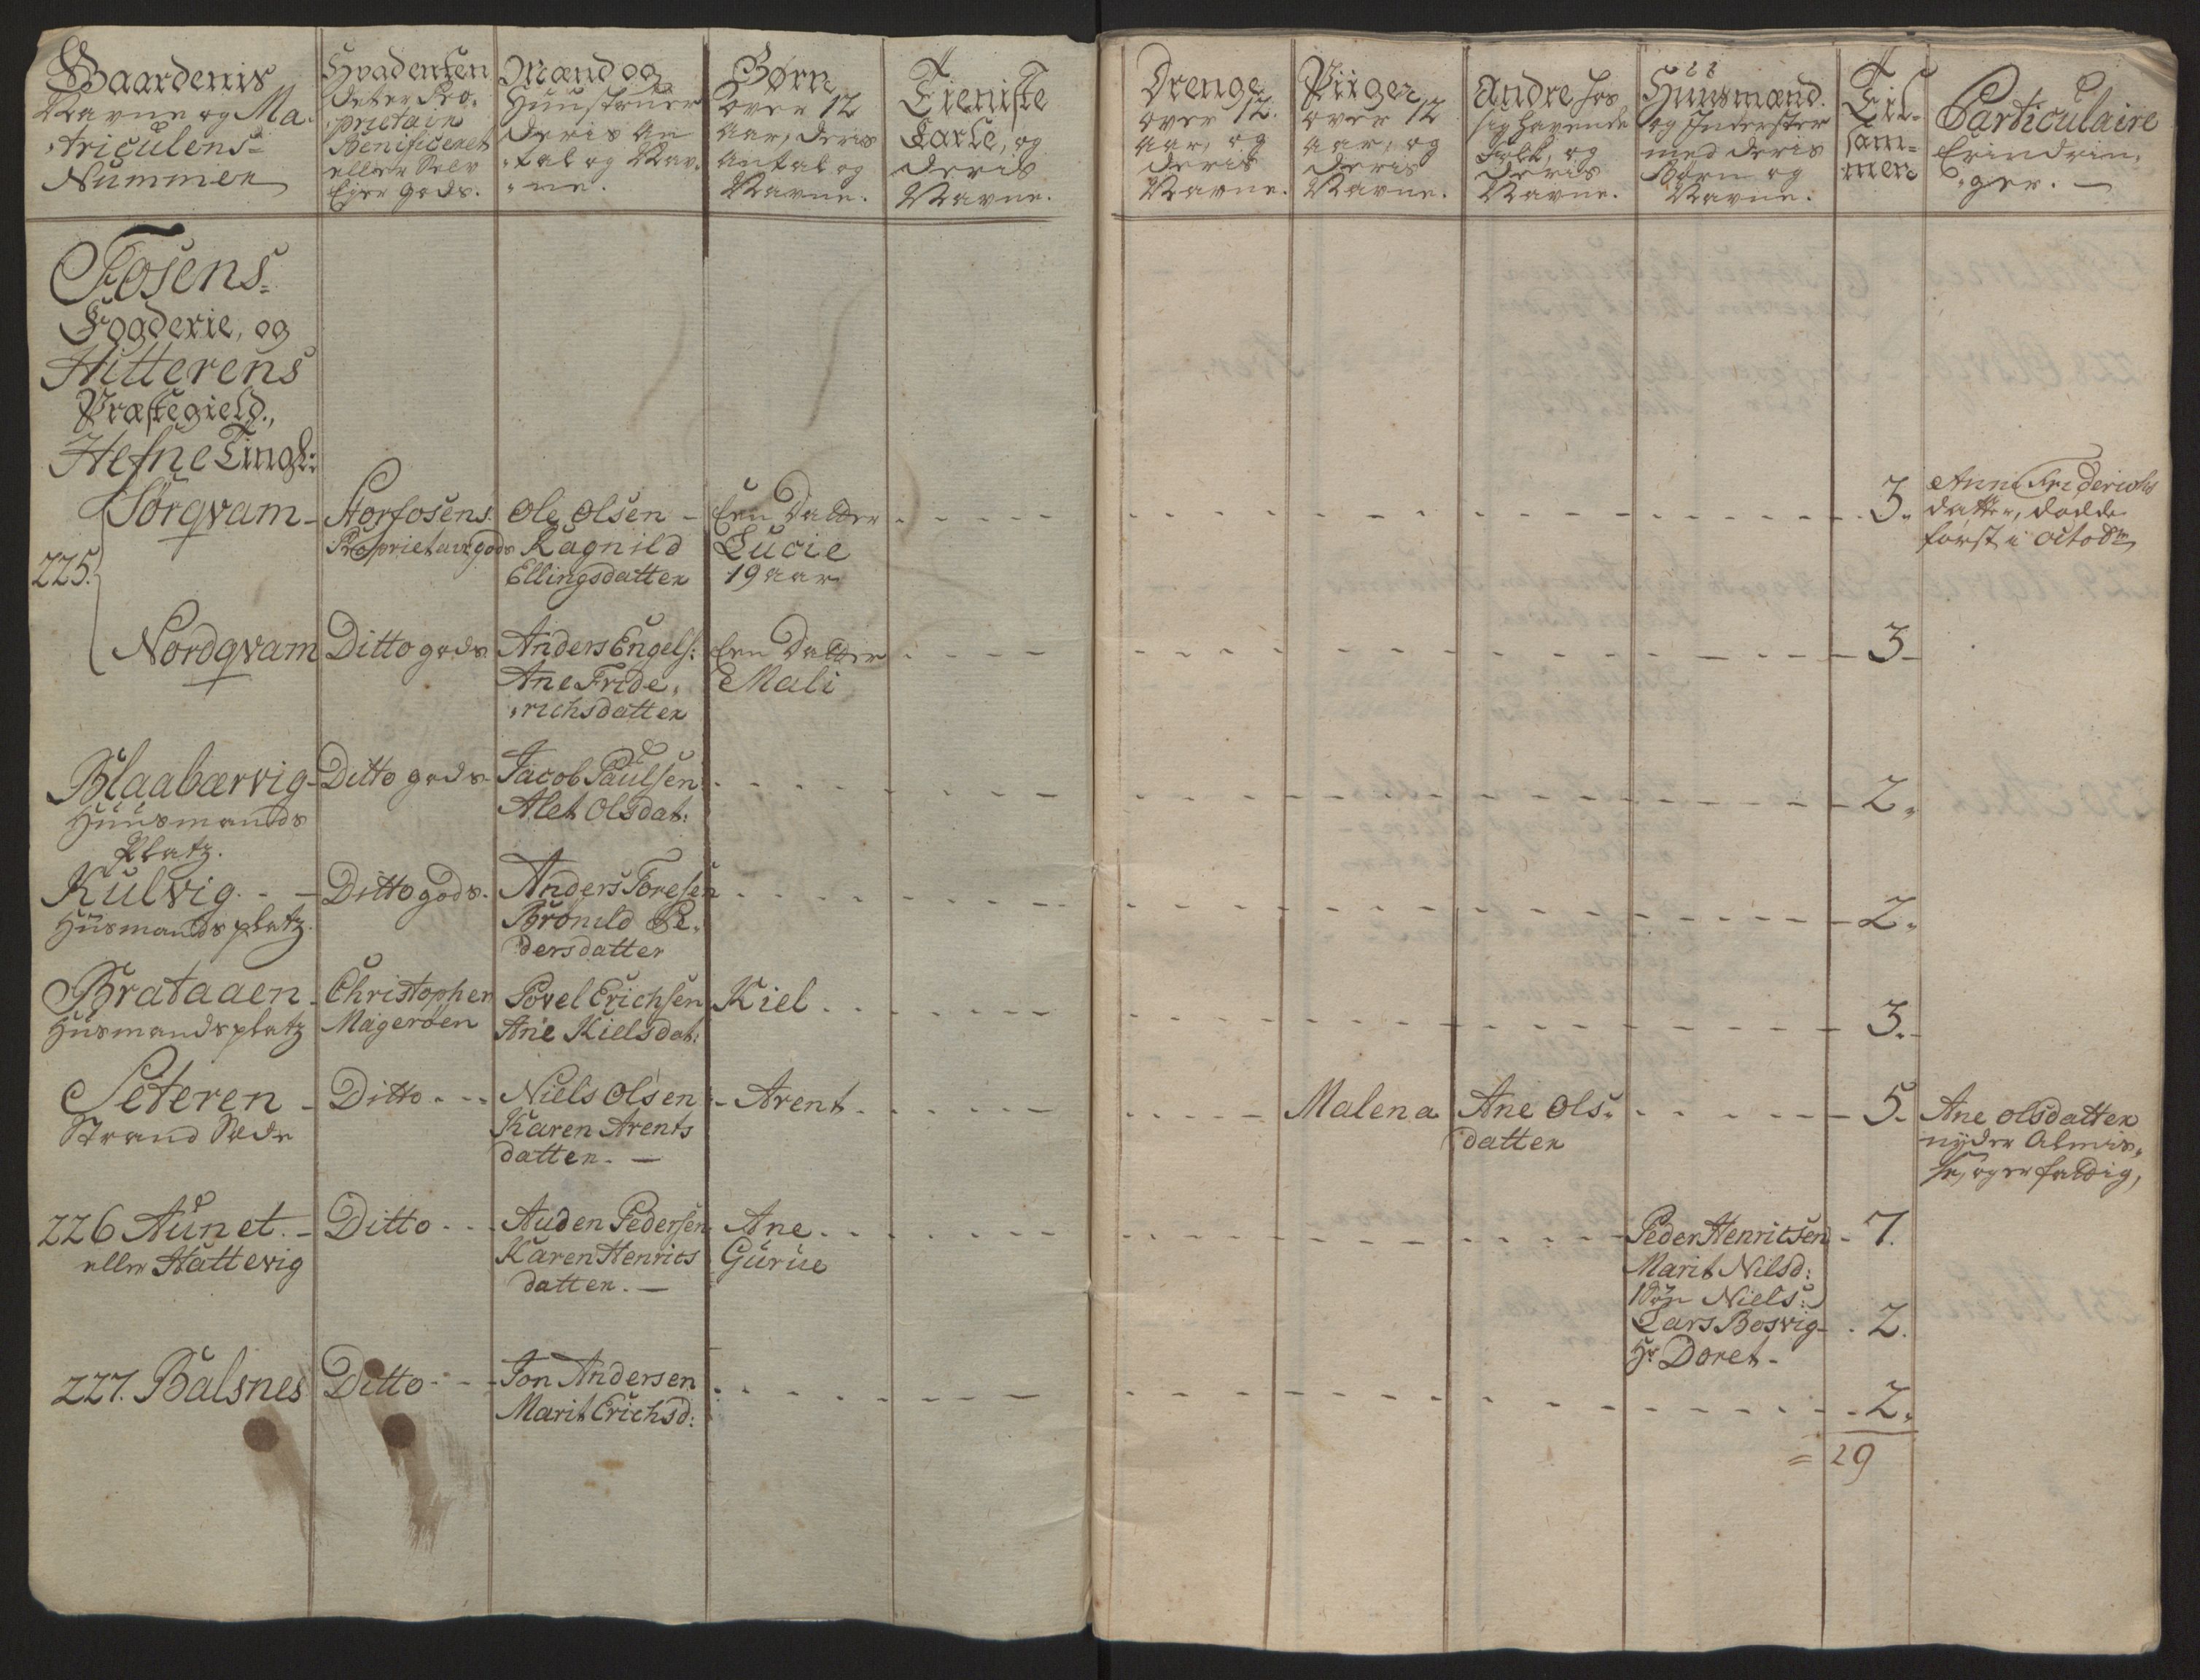 Gaardenis
Navne og Ma-
triculens-
Nummer
Hvadenten
det er Pro-
prietair
Benificeret
eller Selv
Eier gods.
Mænd og
Huustruer
deris An
tal og Nav-
ne.
Børn
over 12
aar, deris
Antal og
Navne.
Tieniste
Karle, og
deris
Navne.
Drenge
over 12.
aar, og
deris
Navne.
Piiger
over 12
aar, og
deris
Navne.
Andre hos
sig havende
Folk, og
deris
Navne.
Huusmænd
og Inderster
med deris
Børn og
Navne.
Til-
sam-
men
Particulaire
Erindrin-
ger. —
Fosens
Fogderie, og
Hitterens
Præstegield,
Hefne Tingl:
225. Sørqvam - Storfosens Proprietair gods
Ole Olsen -
Ragnild
Ellingsdatter
Een Datter
Lucie
19 aar
3.
Ann Friderichs
datter, døde
først i octobr
Nordqvam Ditto gods
Anders Engels:
Ane Fride-
richsdatter
Een Datter
Mali
3
Blaabærvig Ditto gods
Huusmands
Platz.
Jacob Paulsen
Alet Olsdat:
2.
Kulvig - - Ditto gods.
Huusmands platz.
Anders Toresen
Brønild Pe-
dersdatter
2.
Brataaen Christopher
Huusmandsplatz Magerøen
Povel Erichsen
Ane Kielsdat:
Kiel
3.
Seteren - Ditto
Strand Sæde
Niels Olsen
Karen Arents
datter. —
Arent
Malena
Ane Ols-
datter
5.
Ane Olsdatter
nyder Almis-
se, og er fattig,
226 Aunet. - Ditto
eller Hattevig
Auden Pedersen
Karen Henrics
datter. —
Ane
Gurue
Peder Henricsen
Marit Nilsd:
1 Søn Niels:
7.
Lars Bosvig
Hr Doret -
2.
227. Balsnes Ditto
Jon Andersen
Marit Erichsd:
2.
= 29